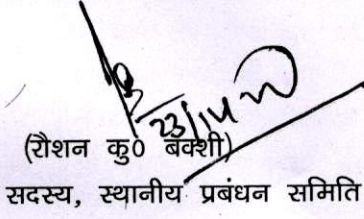 23/14
(रौशन कु० बक्शी)
सदस्य, स्थानीय प्रबंधन समिति